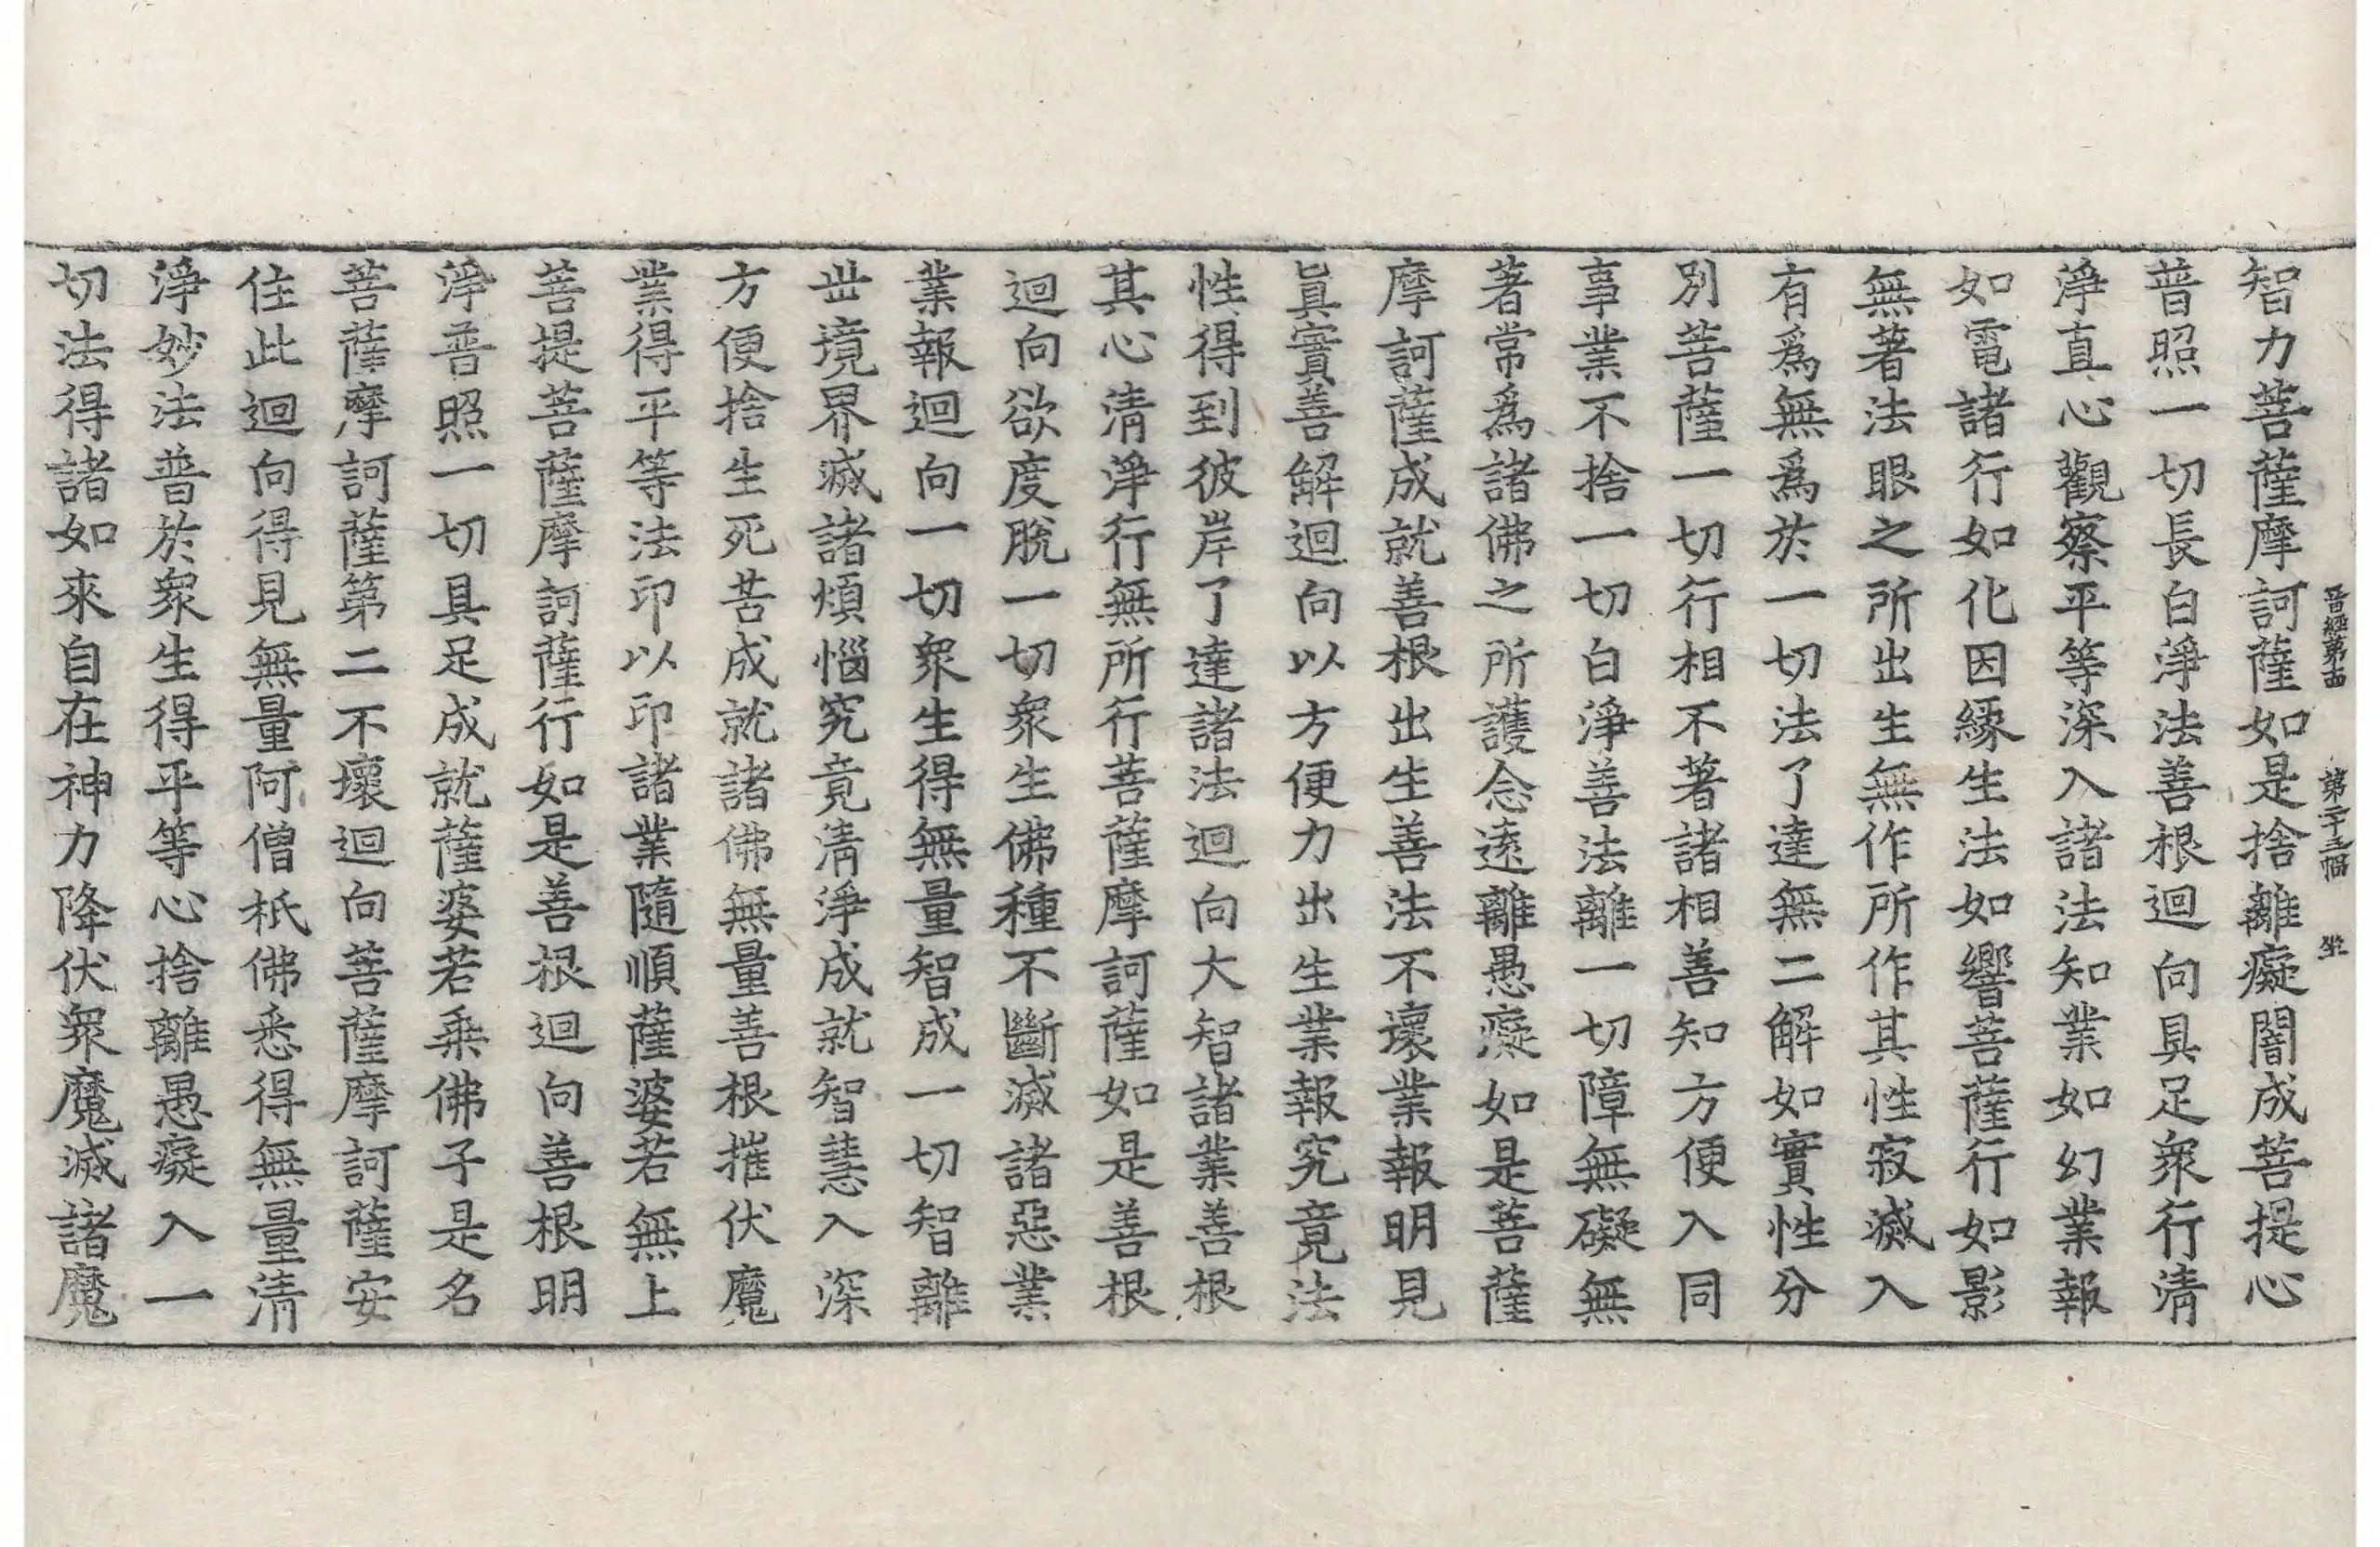 晉經第十四 第二十三幅 坐
智力菩薩摩訶薩如是捨離癡闇成菩提心
普照一切長白淨法善根迴向具足衆行清
淨直心觀察平等深入諸法知業如幻業報
如電諸行如化因緣生法如響菩薩行如影
無著法眼之所出生無作所作其性寂滅入
有爲無爲於一切法了達無二解如實性分
別菩薩一切行相不著諸相善知方便入同
事業不捨一切白淨善法離一切障無礙無
著常爲諸佛之所護念遠離愚癡如是菩薩
摩訶薩成就善根出生善法不壞業報明見
眞實善解迴向以方便力出生業報究竟法
性得到彼岸了達諸法迴向大智諸業善根
其心清淨行無所行菩薩摩訶薩如是善根
迴向欲度脫一切衆生佛種不斷滅諸惡業
業報迴向一切衆生得無量智成一切智離
丗境界滅諸煩惱究竟清淨成就智慧入深
方便捨生死苦成就諸佛無量善根摧伏魔
業得平等法印以印諸業隨順薩婆若無上
菩提菩薩摩訶薩行如是善根迴向善根明
淨普照一切具足成就薩婆若乘佛子是名
菩薩摩訶薩第二不壞迴向菩薩摩訶薩安
住此迴向得見無量阿僧祇佛悉得無量清
淨妙法普於衆生得平等心捨離愚癡入一
切法得諸如來自在神力降伏衆魔滅諸魔